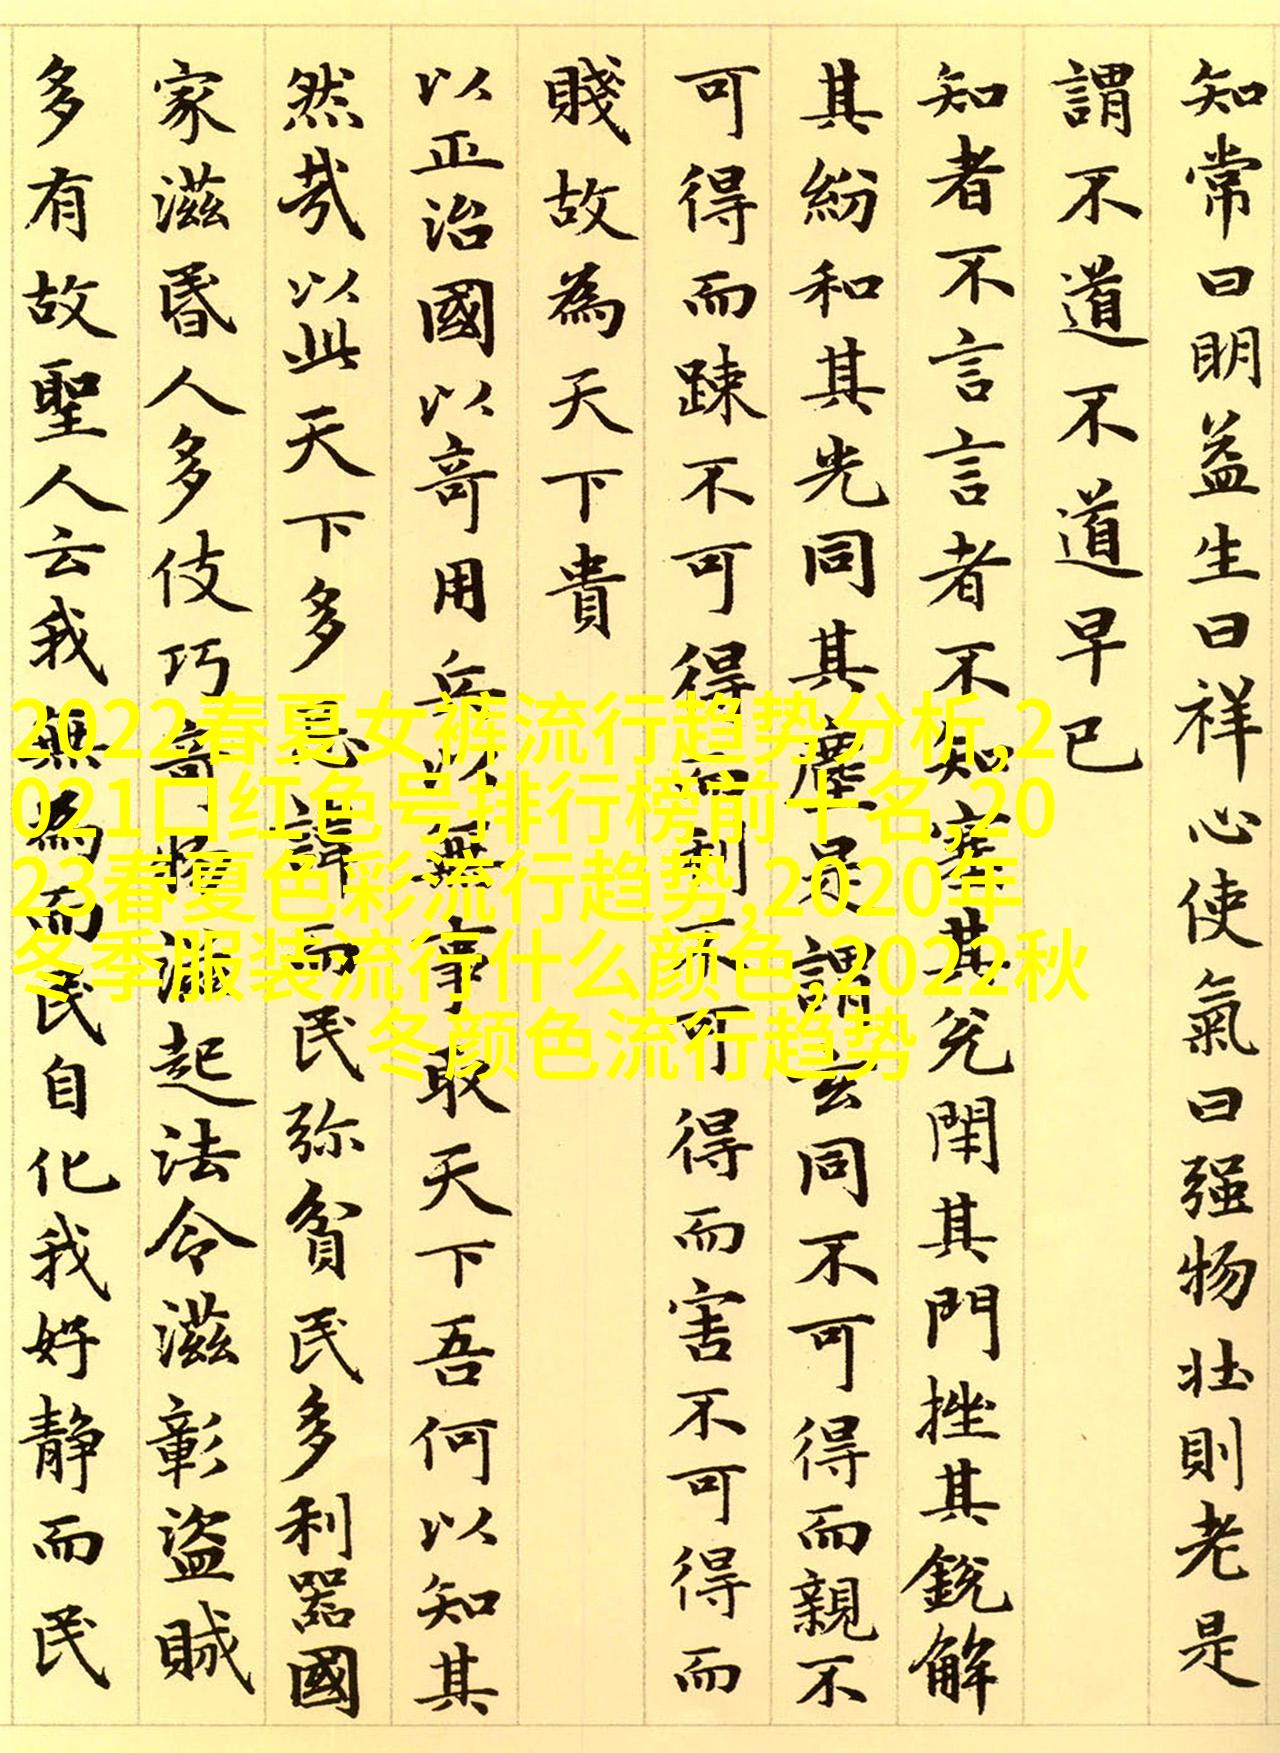 知常曰明益生曰祥心使氣曰强物壯則老是
謂不道不道早已
知者不言言者不知塞其兊閇其門挫其銳解
其紛和其光同其塵是謂玄同不可得而親不
可得而踈不可得而利不可得而害不可得而
賤故為天下貴
以正治國以竒用兵以無事取天下吾何以知其
然哉以此天下多忌諱而民弥貧民多利器國
家滋昬人多伎巧竒物滋起法令滋彰盗賊
多有故聖人云我無為而民自化我好静而民
2022春夏女裤流行趋势分析,2
021口红色号排行榜前十名,20
23春夏色彩流行趋势,2020年
冬季服装流行什么颜色,2022秋
冬颜色流行趋势